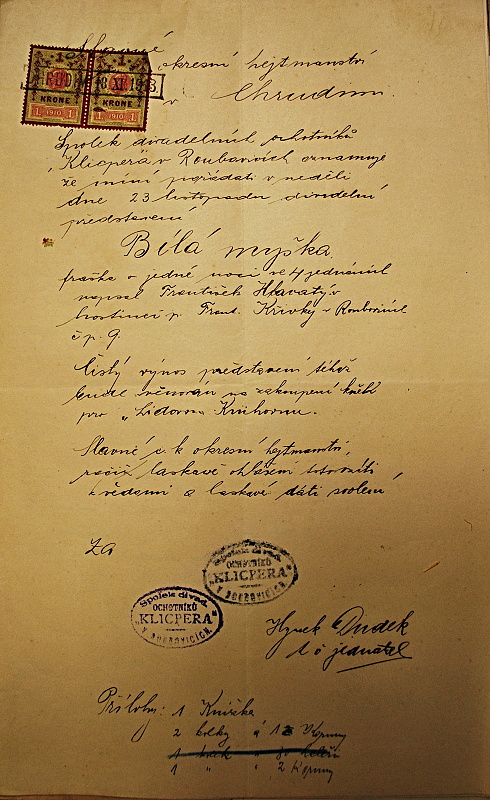 Slavné
okresní hejtmanství
v Chrudimi
1 1
18 XI 13
KRONE KRONE
1 1910 1 1 1910 1
Spolek divadelních ochotníků
„Klicpera v Roubovicích oznamuje
že míní pořádati v neděli
dne 23 listopadu divadelní
představení
Bílá myška.
fraška o jedné noci ve 4 jednáních
napsal František Hlavatý v
hostinci p. Frant. Křivky v
č p. 9.
Čistý výnos představení téhož
bude věnován na zakoupení knih
pro „Lidovou Knihovnu.
Slavné c. k okresní hejtmanství,
račiž laskavě ohlášení toto vzíti
k vědomí a laskavě dáti svolení
Za
Spolek divad.
OCHOTNÍKŮ
„KLICPERA“
Spolek divad.
OCHOTNÍKŮ
„KLICPERA“
Hynek Dudek
t č jednatel
Přílohy: 1 Knížka
2 kolky á 1 Koruny
1 kolek
1 " " 2 Koruny